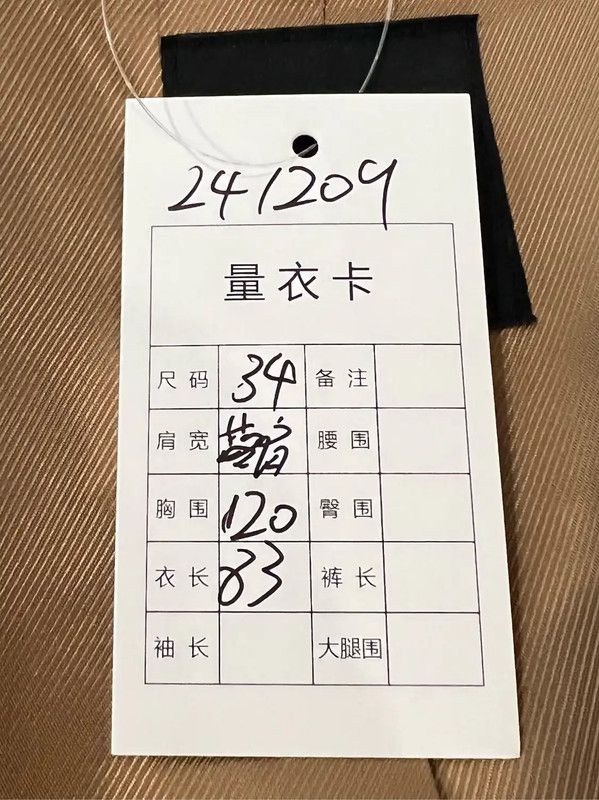 241209
量衣卡
尺码 34 备注
肩宽 落肩 腰围
胸围 120 臀围
衣长 83 裤长
袖长 大腿围